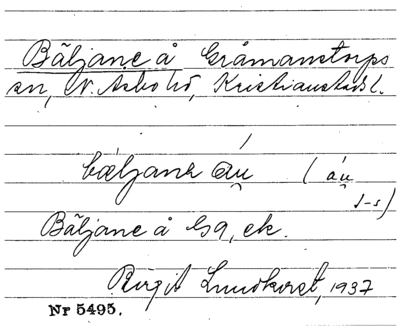 Bäljane å Gråmanstorps
sn, N. Asbo hd, Kristianstads l.
bæljana åu̯ (åu̯
s-s)
Bäljane å G9, ek.
Birgit Lundkvist, 1937
Nr 5495.